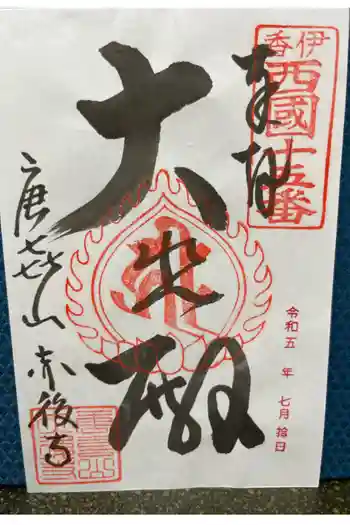 伊香
西國十五番
奉拝
大悲殿
令和五年 七月拾日
唐喜山赤後寺